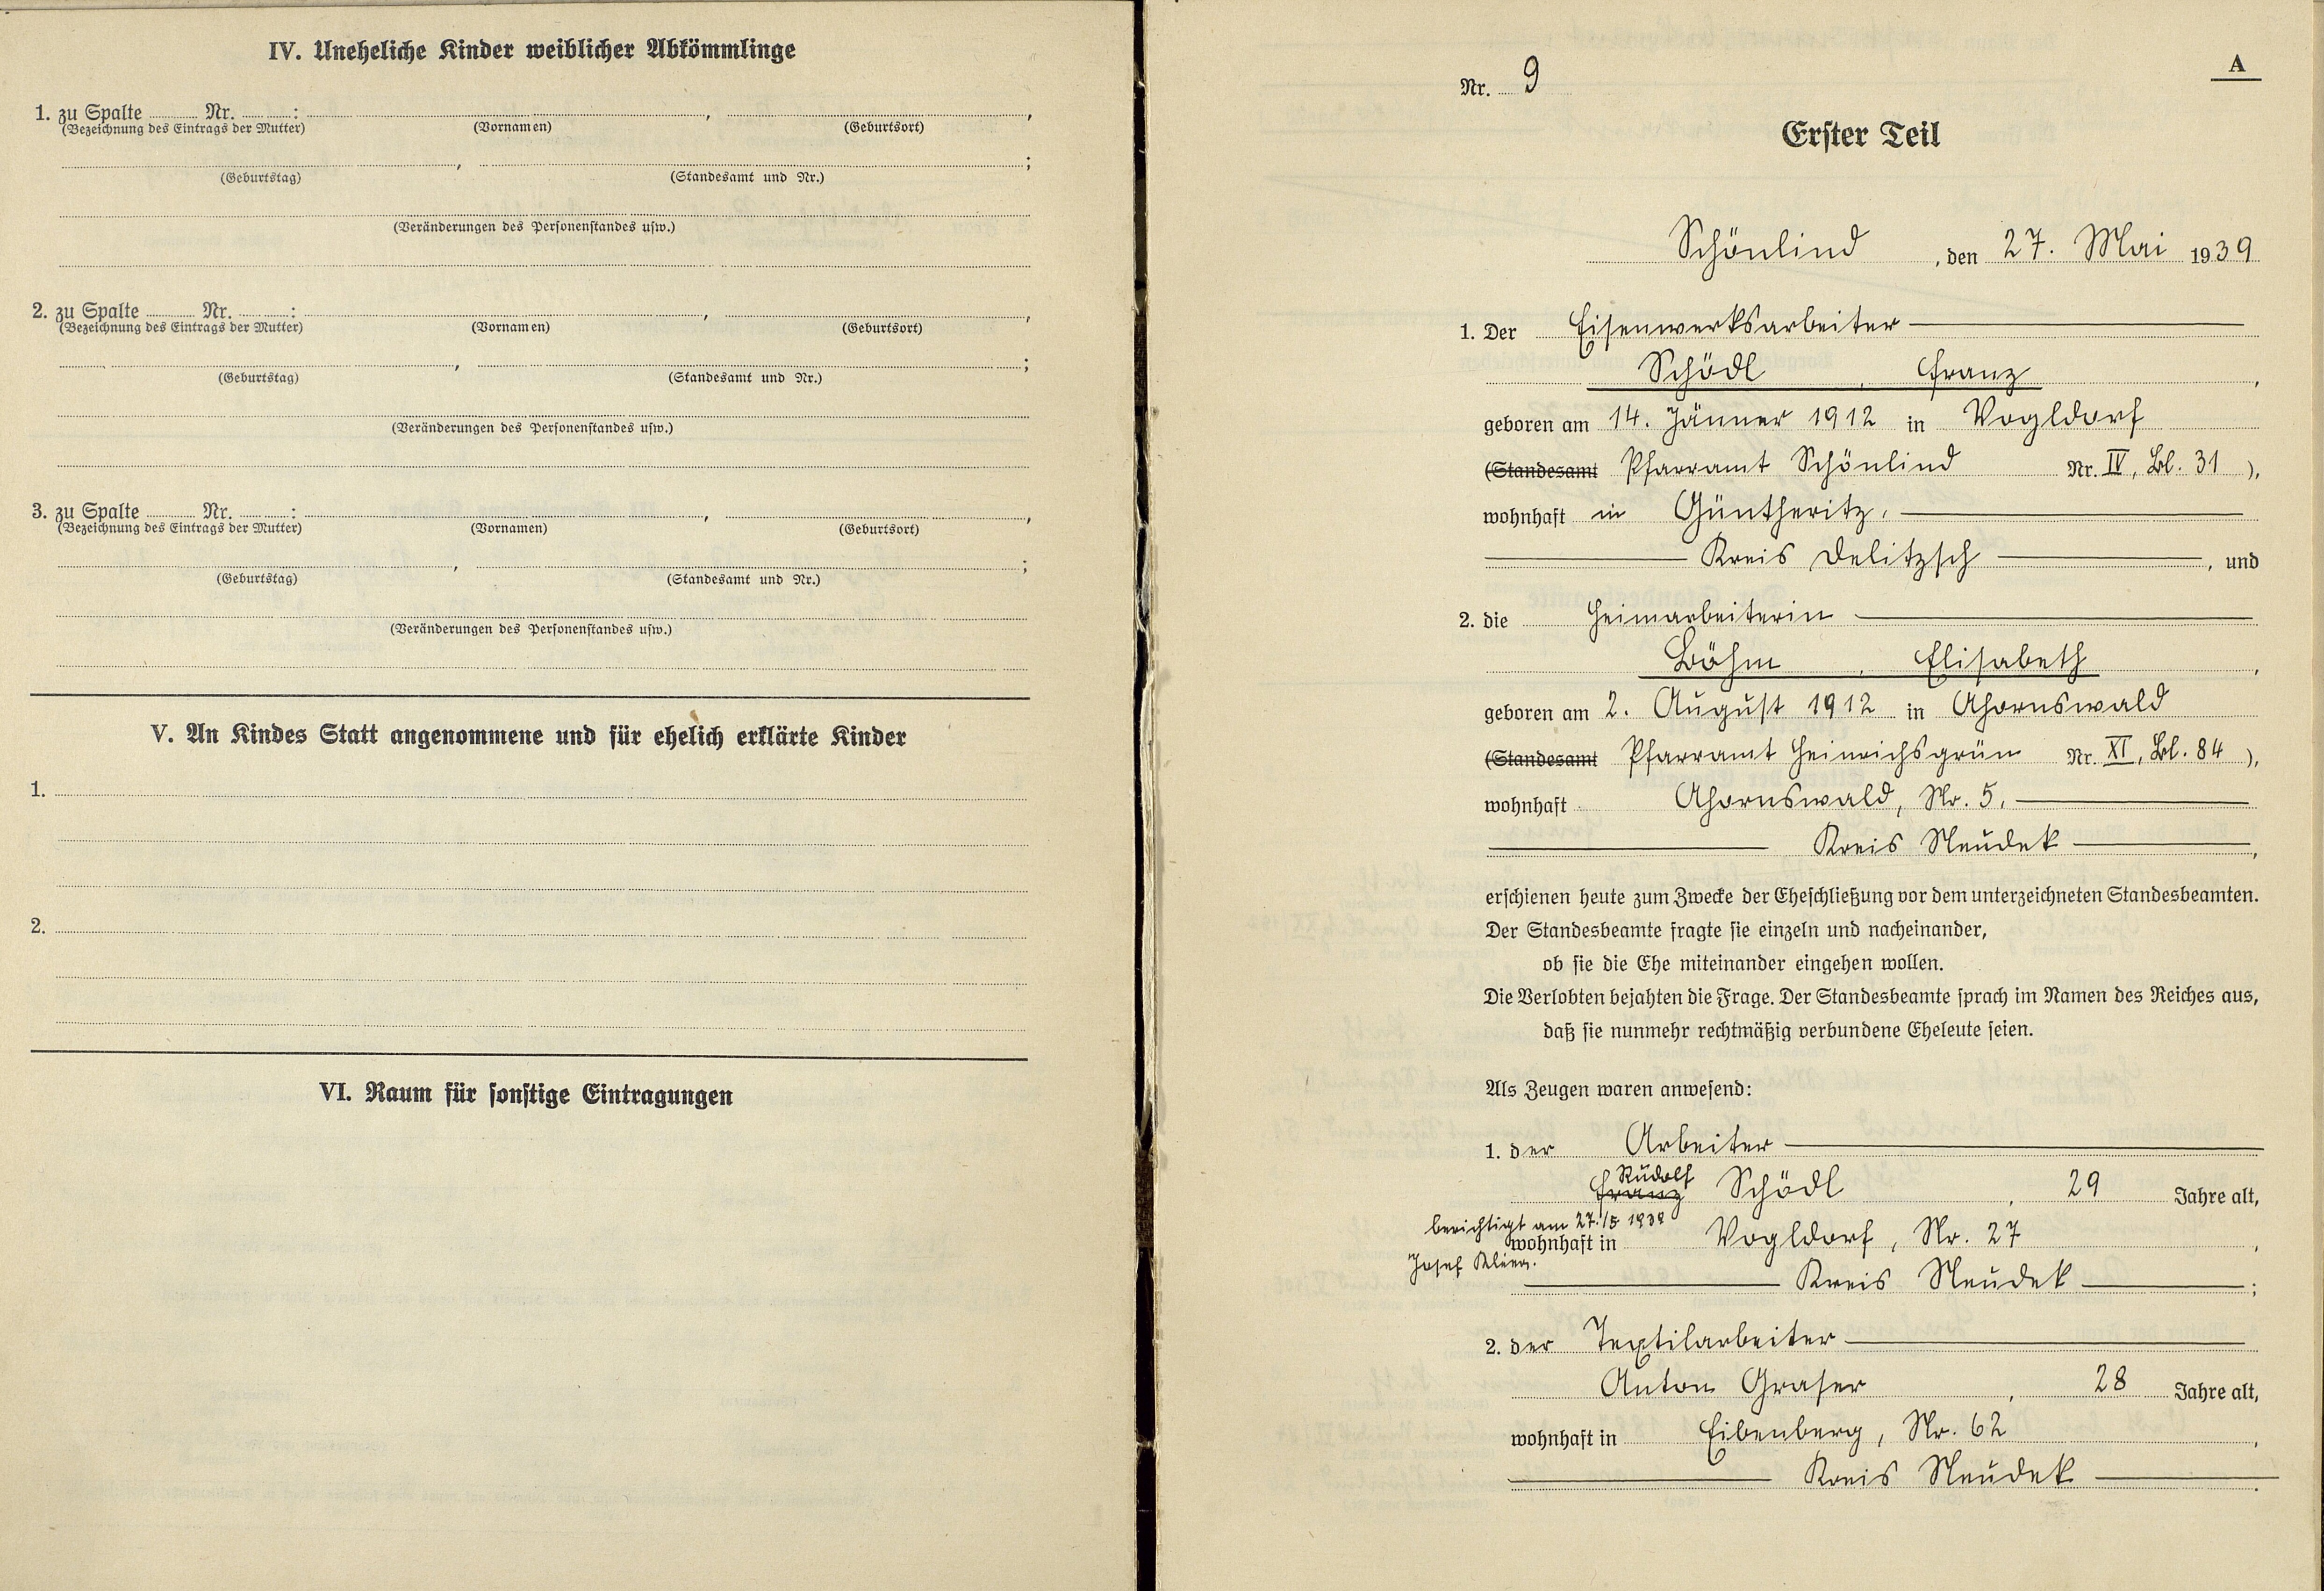 IV. Uneheliche Kinder weiblicher Abkömmlinge
1. zu Spalte ........ Nr. ........: ........, ........,
(Bezeichnung des Eintrags der Mutter) (Vornamen) (Geburtsort)
........, ........;
(Geburtstag) (Standesamt und Nr.)
(Veränderungen des Personenstandes usw.)
2. zu Spalte ........ Nr. ........: ........, ........,
(Bezeichnung des Eintrags der Mutter) (Vornamen) (Geburtsort)
........, ........;
(Geburtstag) (Standesamt und Nr.)
(Veränderungen des Personenstandes usw.)
3. zu Spalte ........ Nr. ........: ........, ........,
(Bezeichnung des Eintrags der Mutter) (Vornamen) (Geburtsort)
........, ........;
(Geburtstag) (Standesamt und Nr.)
(Veränderungen des Personenstandes usw.)
V. An Kindes Statt angenommene und für ehelich erklärte Kinder
1.
2.
VI. Raum für sonstige Eintragungen
A
Nr. 9
Erster Teil
Schönlind, den 27. Mai 1939
1. Der Eisenwerksarbeiter
Schödl, Franz,
geboren am 14. Jänner 1912 in Vogldorf
(Standesamt Pfarramt Schönlind Nr. IV, Bl. 31),
wohnhaft in Güntheritz,
Kreis Delitzsch, und
2. die Heimarbeiterin
Böhm, Elisabeth,
geboren am 2. August 1912 in Ahornswald
(Standesamt Pfarramt Heinrichsgrün Nr. XI, Bl. 84),
wohnhaft Ahornswald, Nr. 5,
Kreis Neudek,
erschienen heute zum Zwecke der Eheschließung vor dem unterzeichneten Standesbeamten.
Der Standesbeamte fragte sie einzeln und nacheinander,
ob sie die Ehe miteinander eingehen wollen.
Die Verlobten bejahten die Frage. Der Standesbeamte sprach im Namen des Reiches aus,
daß sie nunmehr rechtmäßig verbundene Eheleute seien.
Als Zeugen waren anwesend:
1. der Arbeiter
Rudolf
Franz Schödl, 29 Jahre alt,
berichtigt am 27./5 1939
wohnhaft in Vogldorf, Nr. 27,
Josef
Kreis Neudek;
2. der Textilarbeiter
Anton Graser, 28 Jahre alt,
wohnhaft in Eibenberg, Nr. 62,
Kreis Neudek.